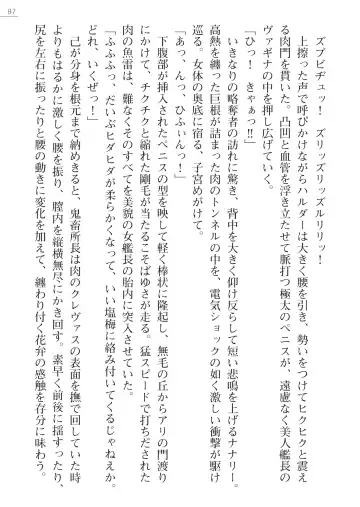 87
ズブビヂュッ！　ズリッズリッズルリリッ！
上擦った声で呼びかけながらハルダーは大きく腰を引き、勢いをつけてヒクヒクと震え
る肉門を貫いた。凸凹と血管を浮き立たせて脈打つ極太のペニスが、遠慮なく美人艦長の
ヴァギナの中を押し広げていく。
「ひっ！　きゃぁっ!!」
いきなりの略奪者の訪れに驚き、背中を大きく仰け反らして短い悲鳴を上げるナナリー。
高熱を纏った巨根が詰まった肉のトンネルの中を、電気ショックの如く激しい衝撃が駆け
巡る。女体の奥底に宿る、子宮めがけて。
「あっ、んっ、ひふぃんっ！」
下腹部が挿入されたペニスの型を映して軽く棒状に隆起し、無毛の丘からアリの門渡り
にかけて、チクチクと縮れた剛毛が当たるこそばゆさが走る。猛スピードで打ちだされた
肉の魚雷は、難なくそのすべてを美貌の女艦長の胎内に突入させていた。
「ふふふっ、だいぶヒダヒダが柔らかくなって、いい塩梅に絡み付いてくるじゃねえか。
どれ、いくぜっ！」
己が分身を根元まで収めきると、鬼畜所長は肉のクレヴァスの表面を撫で回していた時
よりもはるかに激しく腰を振り、膣内を縦横無尽にかき回す。素早く前後に揺すったり、
尻を左右に振ったりと腰の動きに変化を加えて、纏わり付く花弁の感触を存分に味わう。